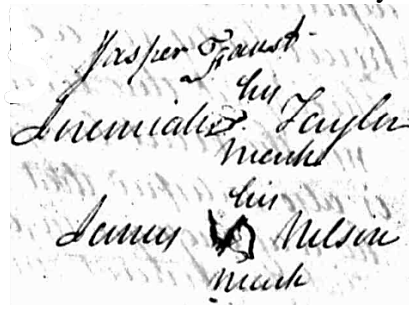 Jasper Faust
his
Jeremiah Taylor
mark
his
James Nelson
mark